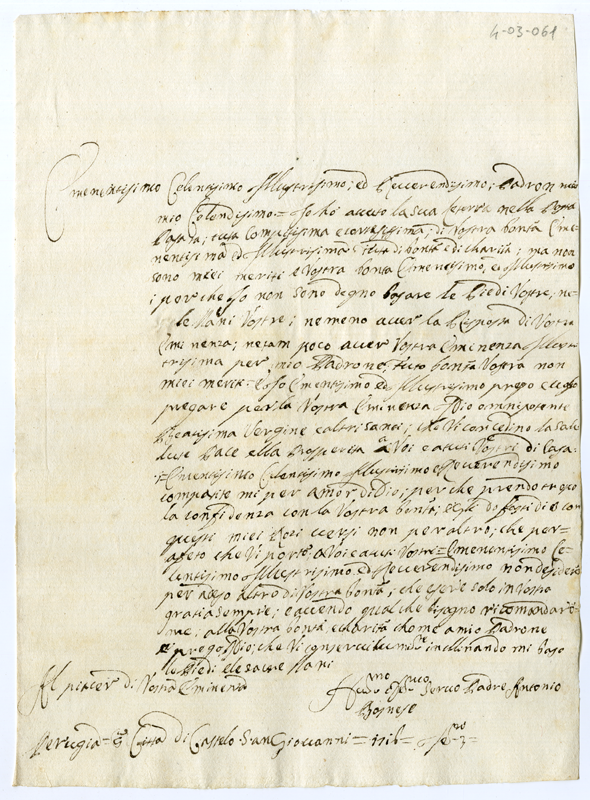 4-03-061
Emenentisimo Celentisimo Illustrisimo, ed Reverendisimo, Padron
mio Colendisimo = Io ho avuto la sua letera nella Posta
tuta Compitisima e cortesisima, di Vostra bontà Eme-
nentisima ed Illustrisima tuta di bontà e di charità; ma non
sono miei meriti e Vostra bontà Emenentisimo, ed Illustrisimo
perche Io non sono degno bagare le Piedi Vostre, ne-
le Mani Vostre; ne meno aver la Risposta di Vostra
Eminenza; ne tam poco aver Vostra Eminenza Illus-
trisima per mio Padrone, tuto bontà Vostra non
miei meriti = Io Ementisimo ed Illustrisimo prego e
pregare per la Vostra Eminenza Idio omnipotente
Beatisima Vergine e altri santi; che Vi concedino la salu-
Pace e la Prosperita a Voi e a tuti Vostri di Casa
Ementisimo Celentisimo Illustrisimo ed Reverendisimo
compatite mi per amor di Dio, perche prendo tropo
la confidenza con la Vostra bontà, di con
questi miei Rozi versi non per altro, che per
afeto che Vi porto a Voi e a tuti Vostri = Emenentisimo Ce-
lentisimo Illustrisimo ed Reverendisimo non desidero
altro di Vostra bontà, che esere solo in Vostra
gratia sempre; e avendo qual che bisogno ricomandar-
me, alla Vostra bontà e charità chome a mio Padrone
prego Idio, che Vi inclinando mi bajo
le Piedi e le sacre Mani
Al piacer di Vostra Eminenza
Servo Padre Antonio
Bosnese
Perugia = Città di Castelo San Giovanni =